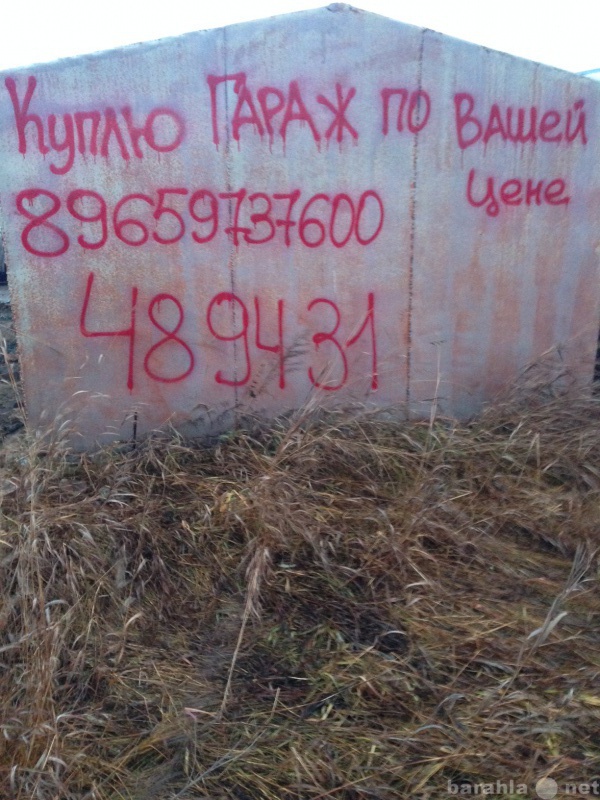 Куплю ГАРАЖ по ВАШЕЙ
цене
89659737600
489431
barahla net